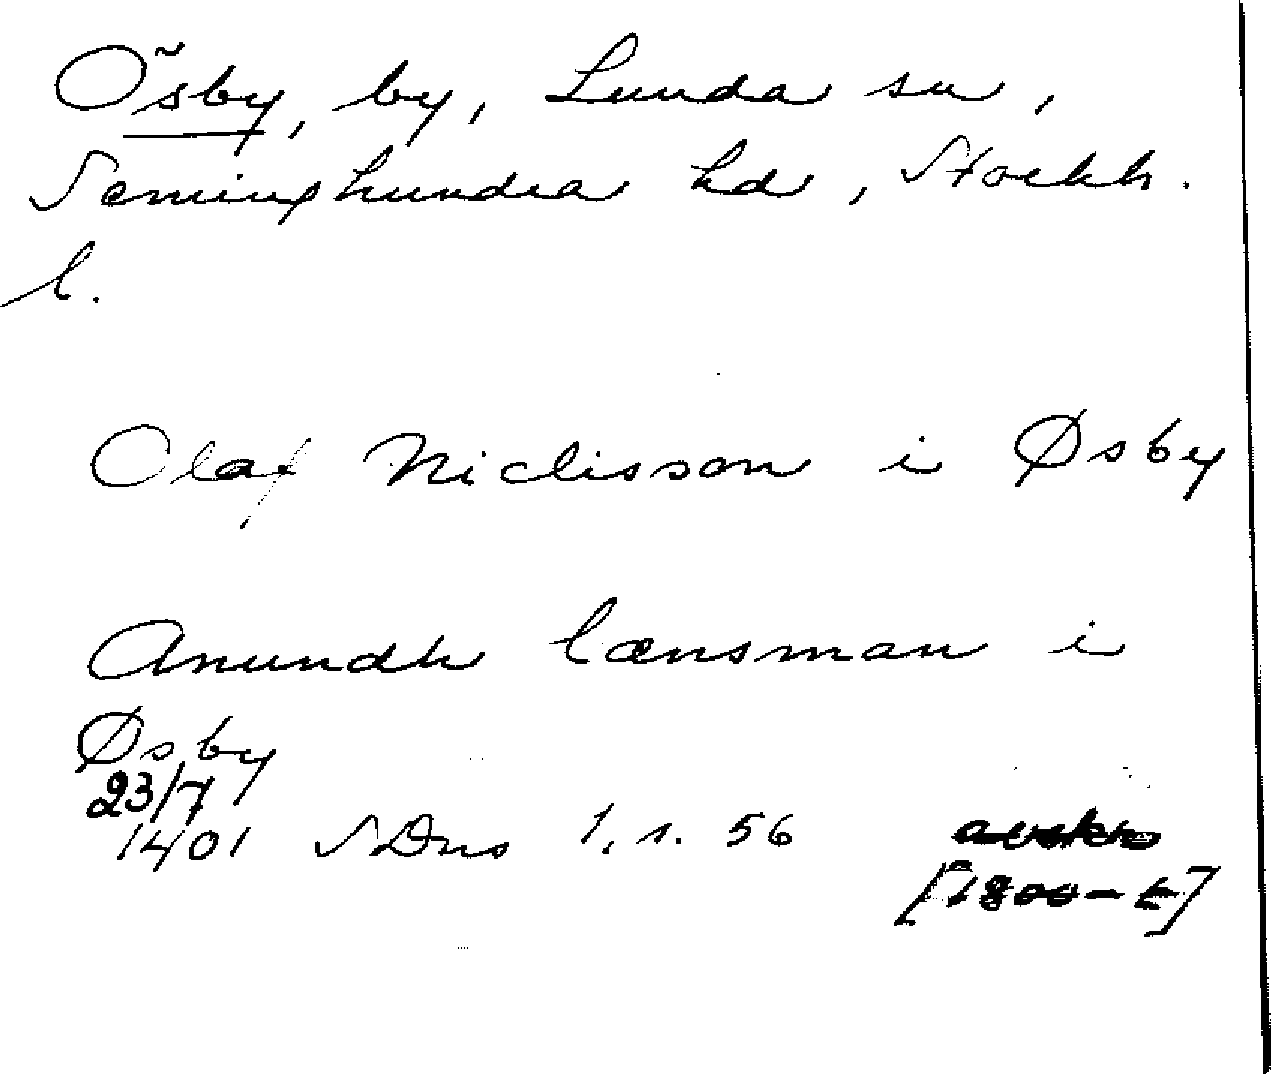 Õsby, by, Lunda sn,
Seminghundra hd, Stockh.
l.
Olaf Niclisson i Øsby
Anundh lænsman i
Øsby
23/7
1401 SDns 1, s. 56 avskr
[1800-t]